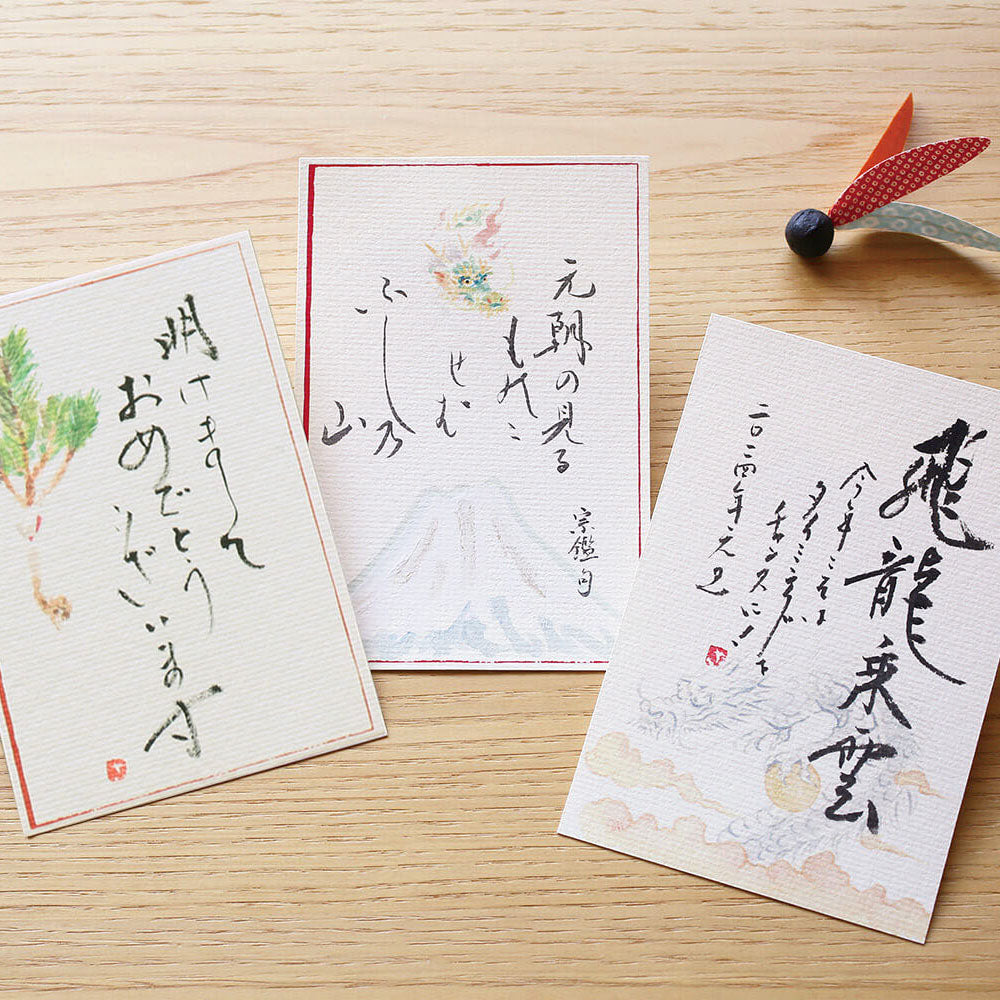 明けまして
おめでとう
ございます
元朝の見る
ものに
せむ
ふし乃
山
宗鑑句
飛龍乗雲
今年こそは
タイミング
チャンスに
二〇二四年元旦